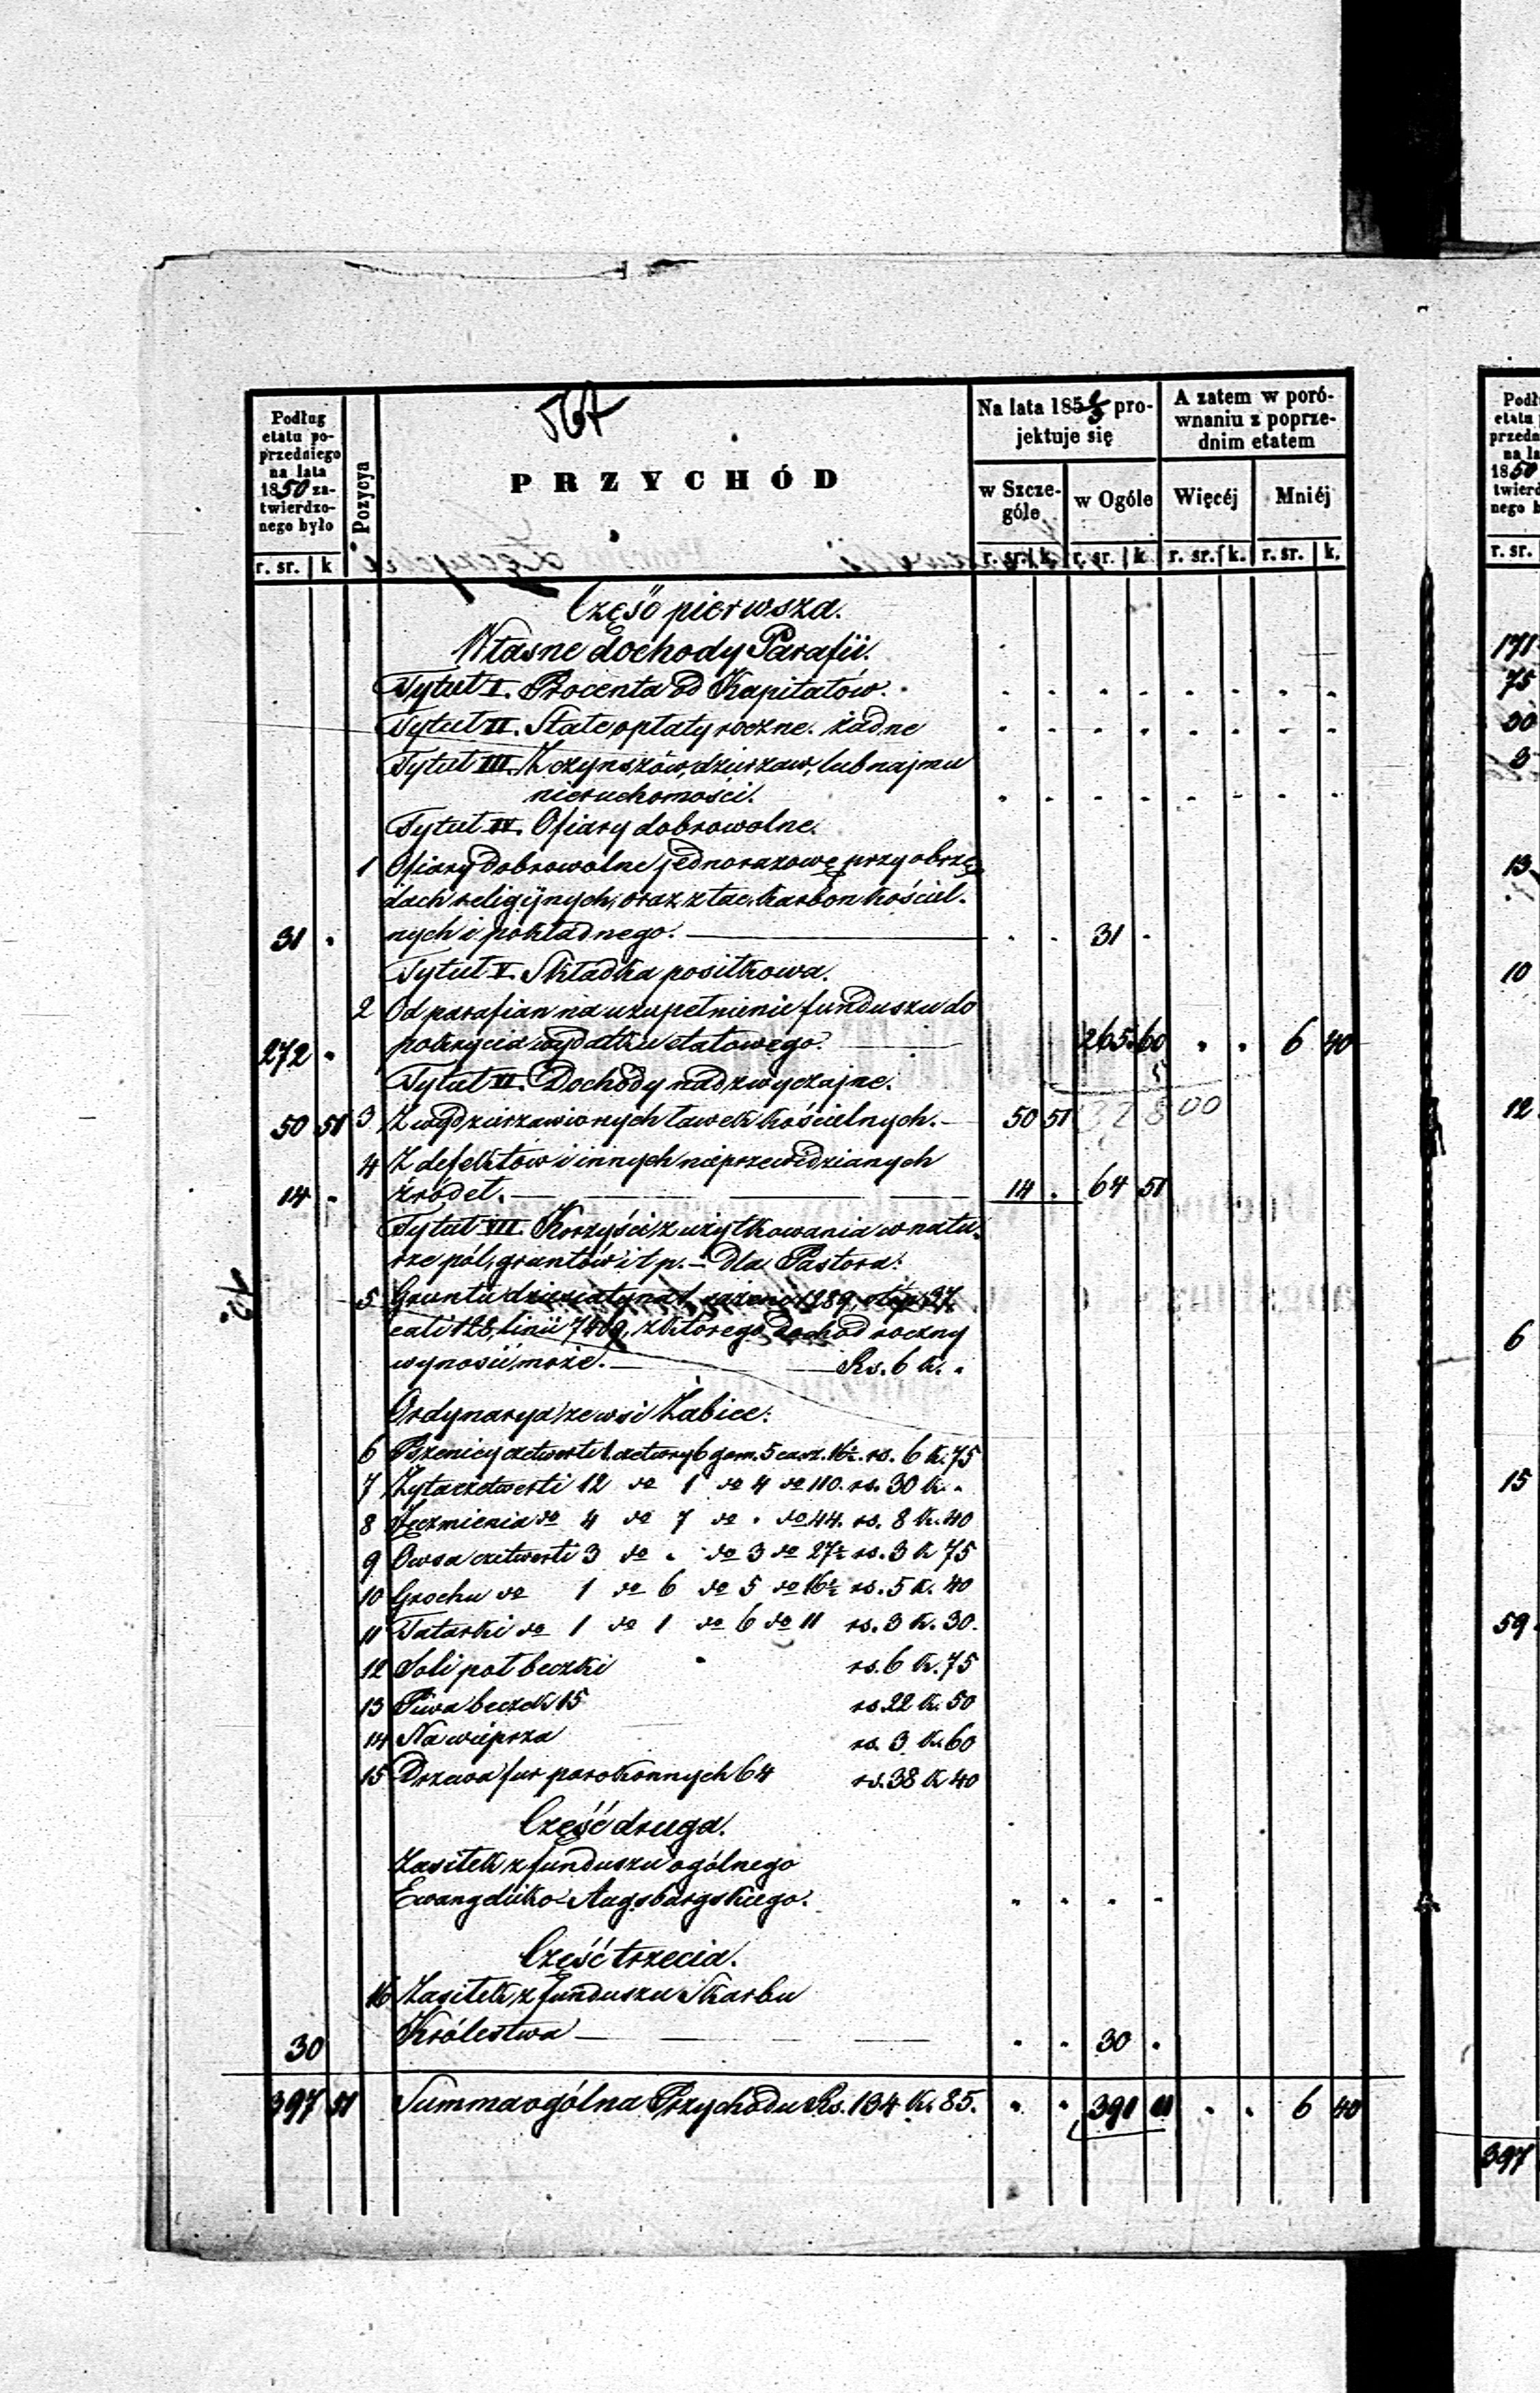 567
Podług etatu poprzedniego na lata 1850 zatwierdzonego było
Pozycya
PRZYCHÓD
Na lata 185 2/3 projektuje się
A zatem w porównaniu z poprzednim etatem
w Szczególe
w Ogóle
Więcéj
Mniéj
r. sr. k r. sr. k. r. sr. k r. sr. k. r. sr. k.
Część pierwsza.
Własne dochody Parafii.
Tytuł I. Procenta od Kapitałów. - - - - - - - -
Tytuł II. Stałe opłaty roczne. żadne - - - - - - - -
Tytuł III. Z czynszów, dzierzaw, lub najmu
nieruchomości. - - - - - - - -
Tytuł IV. Ofiary dobrowolne.
1 Ofiary dobrowolne jednorazowe przy obrzę
dach religijnych, oraz z tac, karbon kościel-
31 . nych i pokładnego. . . 31 .
Tytuł V. Składka posiłkowa.
2 Od parafian na uzupełnienie funduszu do
272 . pokrycia wydatku etatowego. 265 60 . . 6 40
Tytuł VI. Dochody nadzwyczajne.
50 51 3 Z wydzierzawionych ławek kościelnych. 50 51 328 00
4 Z defektów i innych nieprzewidzianych
14 . źrodeł. 14 . 64 51
Tytuł VII. Korzyści z użytkowania w natu-
rze pól, gruntów i t p. - dla Pastora:
5 Gruntu dziesiatyna 1, sażeni 1289, stop 37
cali 128, linii 7409, z którego dochód roczny
wynosić może. Rs. 6 k. .
Ordynarya ze wsi Żabice:
6 Pszenicy czetwerti 1. czetwery 6 garn. 5 cz. sz. 16½. rs. 6 k. 75
7 Żyta czetwerti 12 do 1 do 4 do 110. rs. 30 k. .
8 Jęczmienia do 4 do 7 do . do 44. rs. 8 k. 40
9 Owsa czetwerti 3 do . do 3 do 27½ rs. 3 k 75
10 Grochu do 1 do 6 do 5 do 16½ rs. 5 k. 40
11 Tatarki do 1 do 1 do 6 do 11 rs. 3 k. 30.
12 Soli poł beczki rs. 6 k. 75
13 Piwa beczek 15 rs. 22 k. 50
14 Na wieprza rs. 3 k. 60
15 Drzewa fur parokonnych 64 rs. 38 k 40
Część druga.
Zasiłek z funduszu ogólnego
Ewangelicko-Augsburgskiego. . . . .
Część trzecia.
16 Zasiłek z funduszu Skarbu
30 Królestwa . . 30 .
397 51 Summa ogólna Przychodu Rs. 134 k. 85. . . 391 11 . . 6 40
1850
r. sr.
171
75
30
3
13
10
12
6
15
59
397